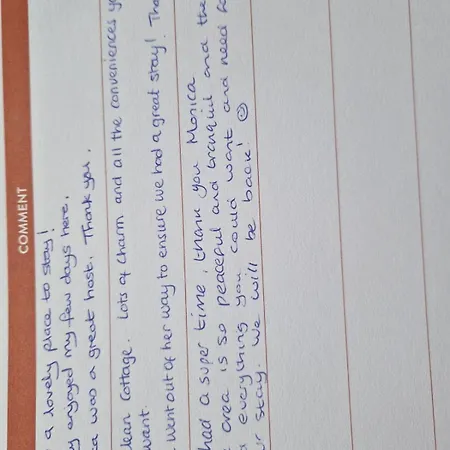 COMMENT
a lovely place to stay!
enjoyed my few days here,
was a great host. Thank you.
Cottage. Lots of charm and all the conveniences
want.
went out of her way to ensure we had a great stay!
had a super time, thank you Monica
area is so peaceful and tranquil and the
everything you could want and need
stay. We will be back! ☺